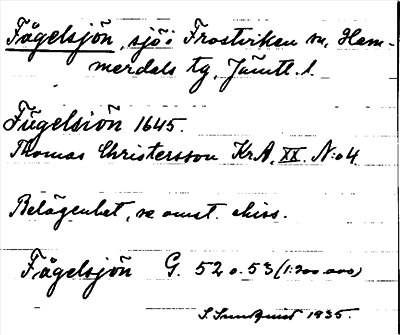 Fågelsjön, sjö i Frostviken sn, Ham-
merdals tg, Jämtl. l.
Fûgelsiön 1645.
Thomas Christersson Kr.A. XX. N:o 4.
Belägenhet, se omst. skiss.
Fågelsjön G. 52 o. 53 (1:200 000)
S. Sundquist 1935.